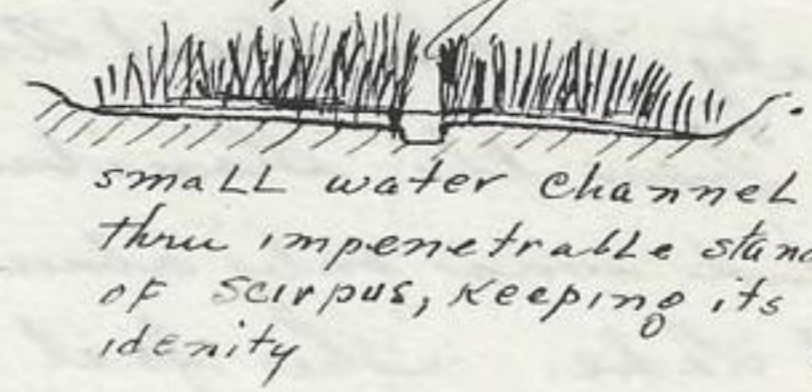 small water channel
thru impenetrable stand
of scirpus, keeping its
idenity